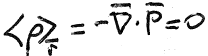 <ρ>_r = -∇̄·P̄ = 0